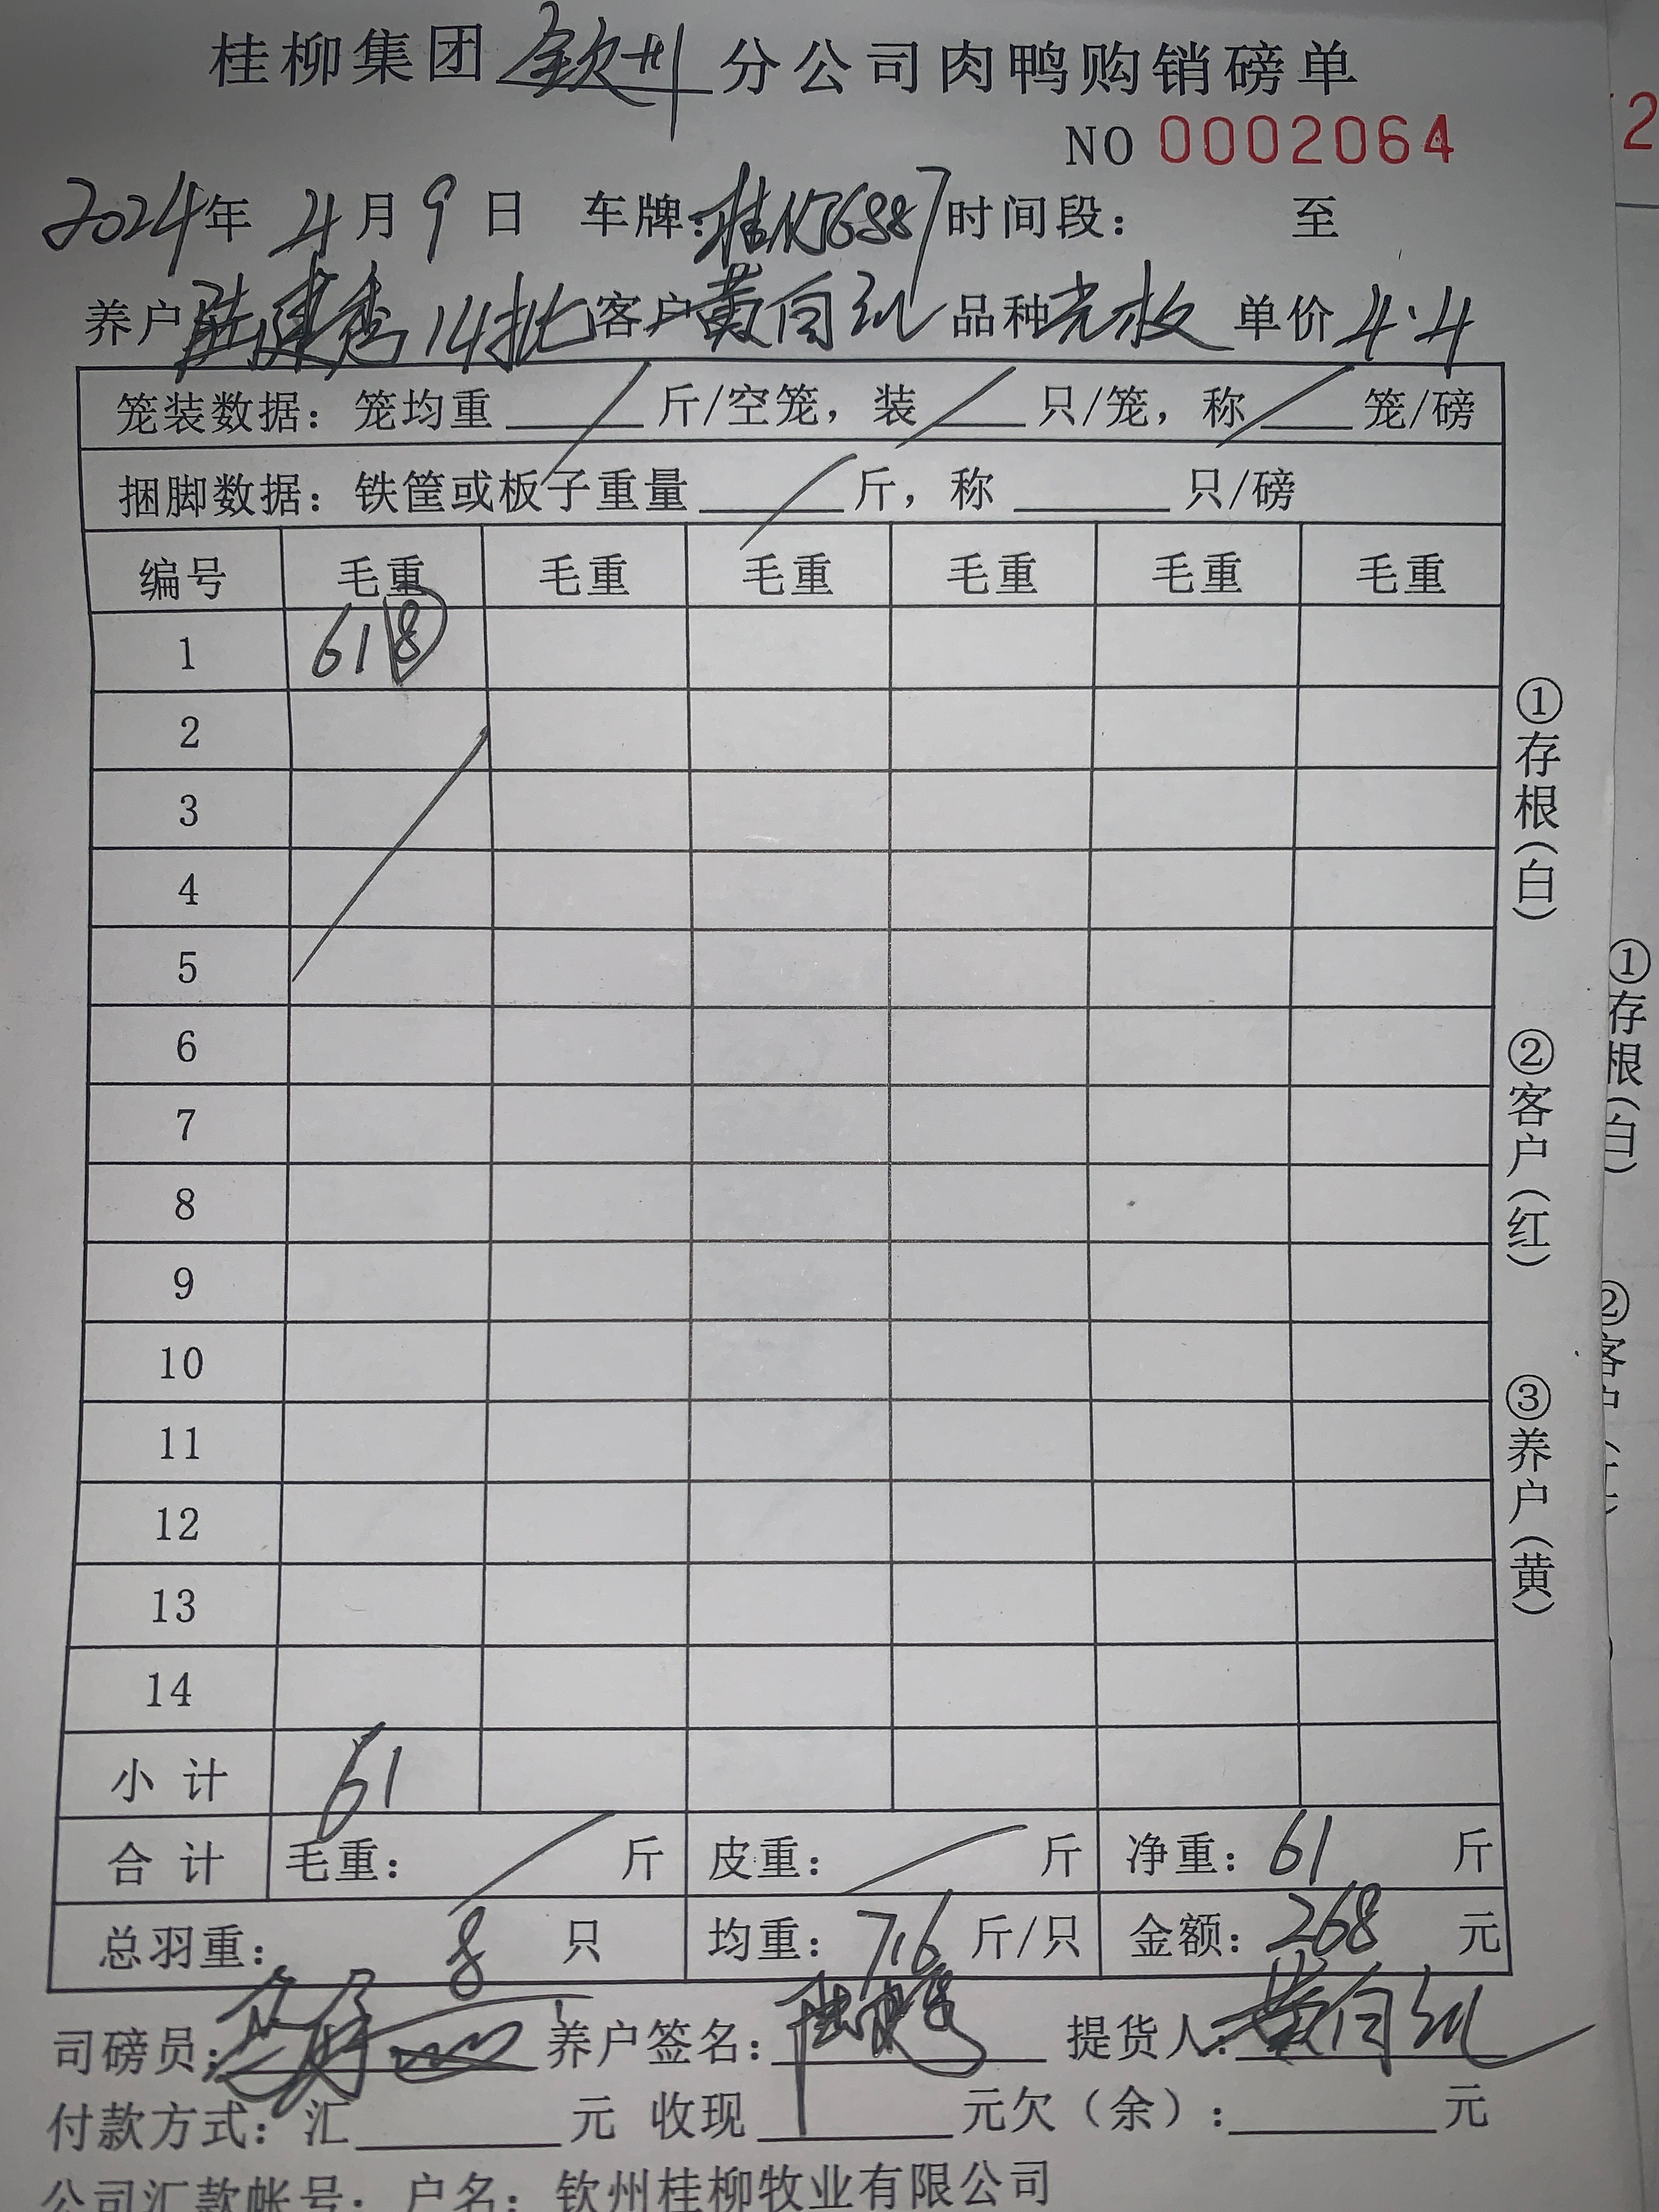 桂柳集团 钦州 分公司肉鸭购销磅单
NO 0002064
2024年 4月 9日 车牌: 时间段： 至
养户 陆建秀 14批 客户 黄向红 品种 光板 单价 4.4
笼装数据：笼均重 斤/空笼，装 只/笼，称 笼/磅
捆脚数据：铁筐或板子重量 斤，称 只/磅
编号 毛重 毛重 毛重 毛重 毛重 毛重
1 61 8
2
3
4
5
6
7
8
9
10
11
12
13
14
小计 61
合计 毛重： 斤 皮重： 斤 净重：61 斤
总羽重： 8 只 均重：7.6 斤/只 金额：268 元
司磅员： 养户签名： 提货人：黄向红
付款方式：汇 元 收现 元欠（余）： 元
公司汇款帐号：户名：钦州桂柳牧业有限公司
①存根（白） ②客户（红） ③养户（黄）
2
①存根（白）
②客户